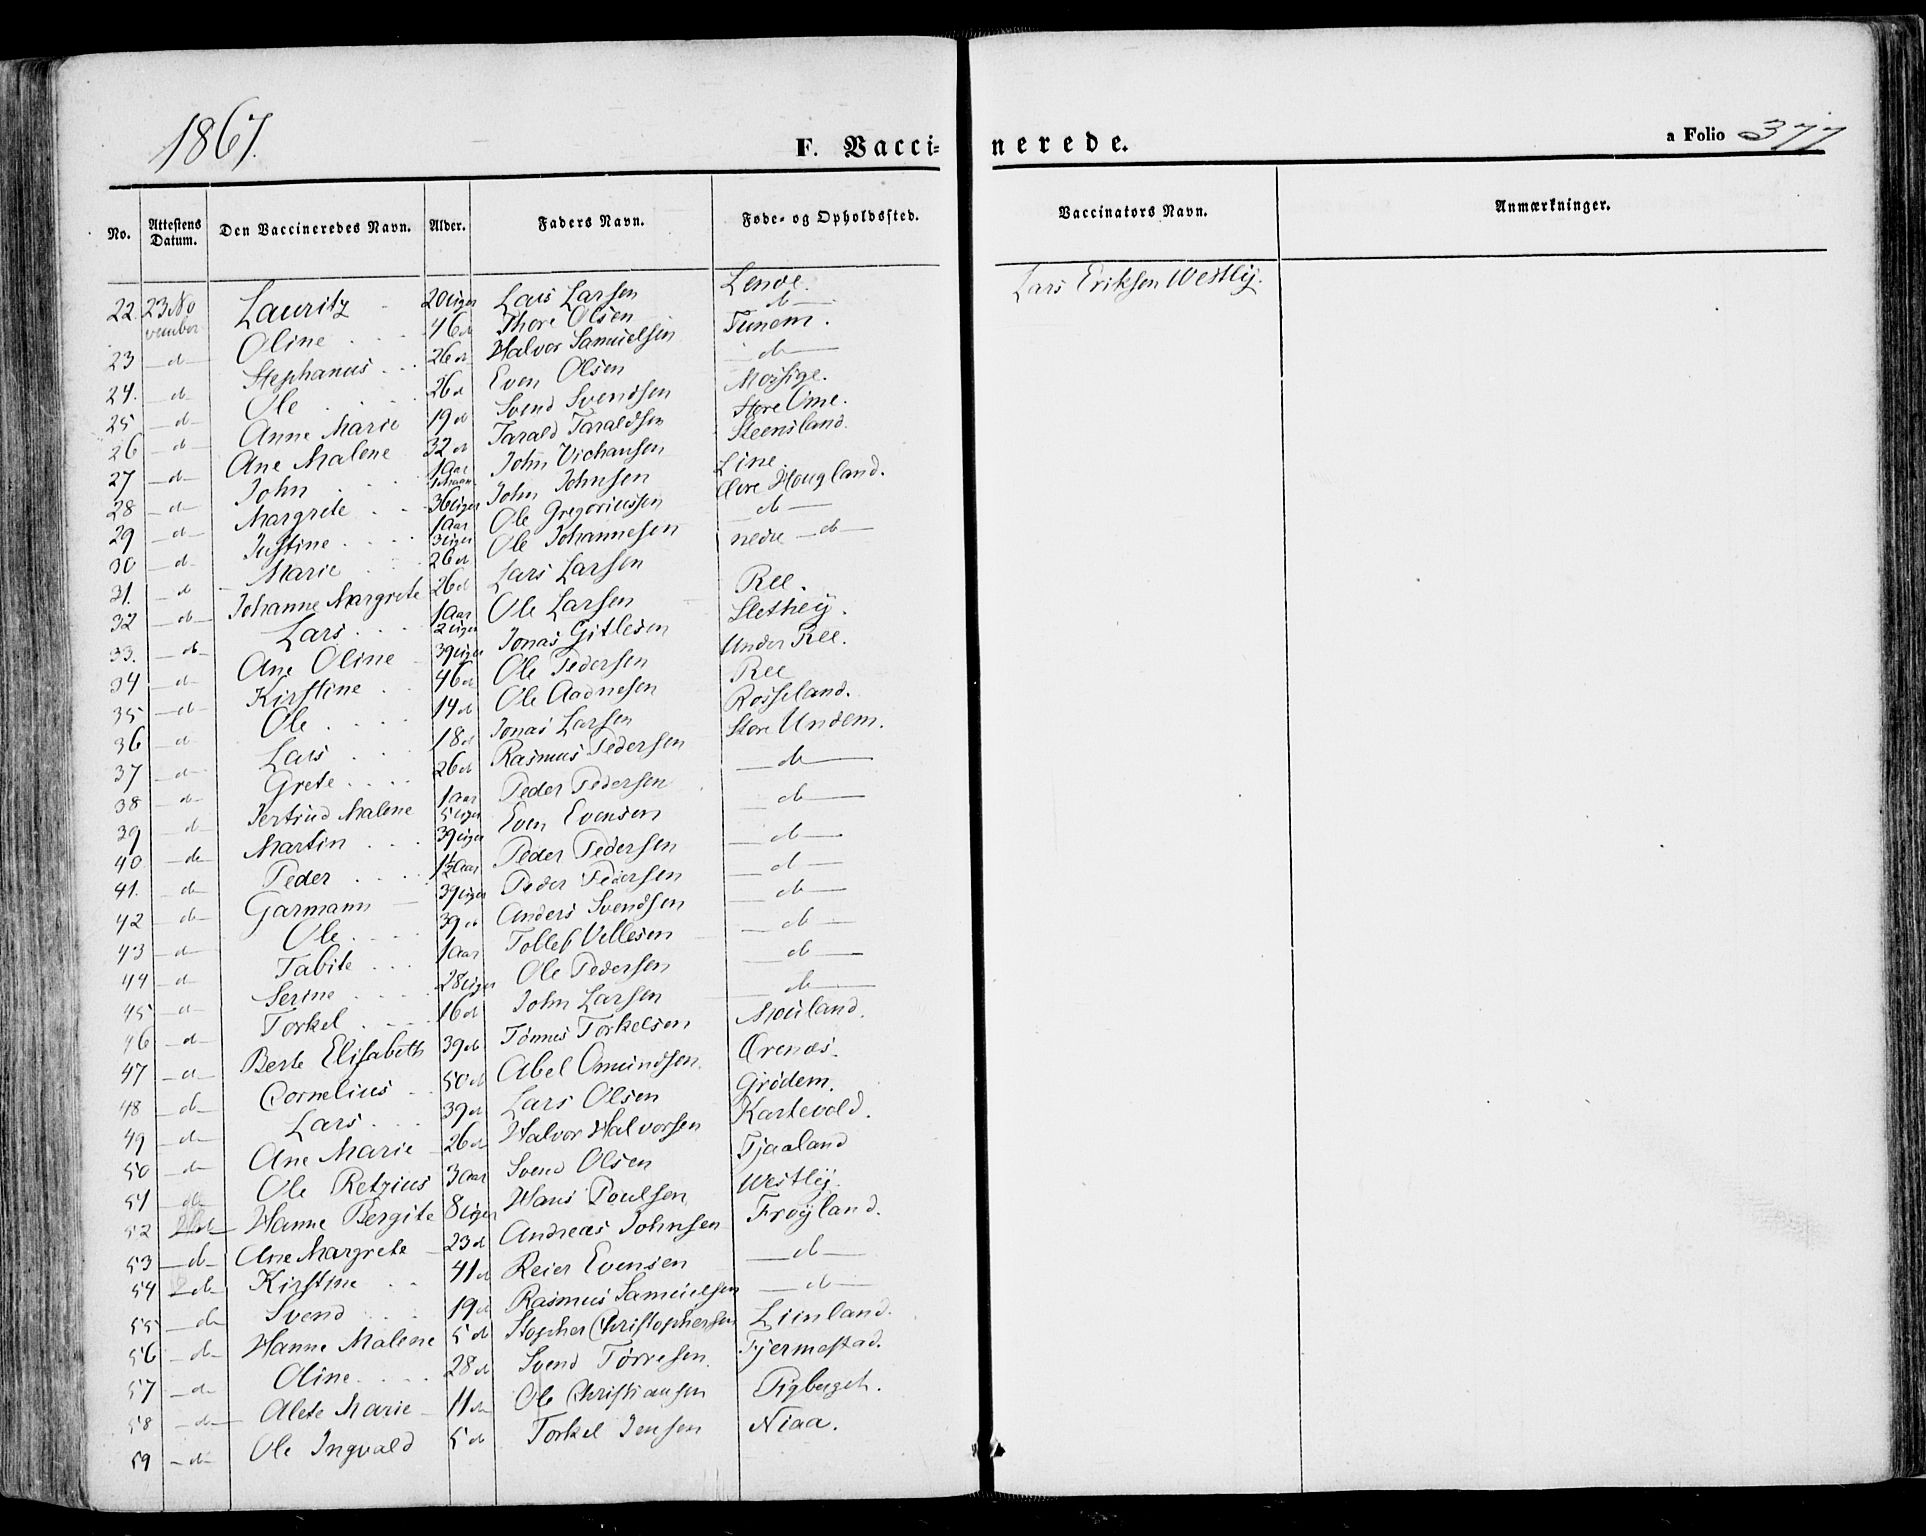 1867.
F. Vaccinerede.
a Folio 377
No. Attestens Datum. Den Vaccineredes Navn. Alder. Faders Navn. Føde- og Opholdssted. Vaccinators Navn. Anmærkninger.
22. 23 November Lauritz 20 Uger Lars Larsen Lende. Lars Eriksen Westlij.
23 -d- Oline 46 d Thore Olsen -d-
24. -d- Stephanus 26 d Halvor Samuelsen Tunem.
25 -d- Ole 26 d Even Olsen -d-
26 -d- Anne Marie 19 d Svend Svendsen Mossige.
27 -d- Ane Malene 32 d Tarald Taraldsen Store Ome.
28 -d- John 1 Aar John Steensland.
29 -d- Margrete 36 Uger John Johnsen Line
30 -d- Justine 1 Aar 3 Uger Ole Gregoriussen Øvre Hougland.
31. -d- Marie 26 d Ole Johannesen -d-
32 -d- Johanne Margrete 26 d Lars Larsen nedre -d-
33. -d- Lars 1 Aar 2 Uger Ole Larsen Ree.
34 -d- Ane Oline 39 Uger Jonas Gitlesen Slethej.
35 -d- Kirstine 46 d Ole Pedersen Under Ree.
36 -d- Ole 14 d Ole Aadnesen Ree
37 -d- Lars 18 d Jonas Larsen Rosseland.
38 -d- Grete 26 d Rasmus Pedersen Store Undem.
39 -d- Jertrud Malene 1 Aar 5 Uger Peder Pedersen -d-
40 -d- Martin 39 Uger Even Evensen -d-
41. -d- Peder 1½ Aar Peder Pedersen -d-
42 -d- Garmann 39 Uger Peder Pedersen -d-
43 -d- Ole 39 d Anders Svendsen -d-
44 -d- Tabite 1 Aar Tollef Vellesen -d-
45 -d- Serine 28 Uger Ole Pedersen -d-
46 -d- Torkel 16 d John Larsen -d-
47 -d- Berte Elisabeth 39 d Tønnes Torkelsen Mouland.
48 -d- Cornelius 50 d Abel Omundsen. Ørenæs.
49 -d- Lars 39 d Lars Olsen Grødem.
50 -d- Ane Marie 26 d Halvor Halvorsen Kartevold.
51 -d- Ole Retzius 3 Aar Svend Olsen Tjaaland
52 -d- Hanne Bergite 8 Uger Hans Poulsen Westlij.
53 -d- Ane Margrete 23 d Andreas Johnsen Frøyland.
54 -d- Kirstine 41 d Reier Evensen -d-
55 -d- Svend 19 d Rasmus Samuelsen -d-
56 -d- Hanne Malene 5 d Stopher Christophersen Liinland.
57 -d- Oline 28 d Svend Tørresen Tjermestad.
58 -d- Alete Marie 11 d Ole Christiansen
59 -d- Ole Ingvald 5 d Torkel Jensen Niaa.